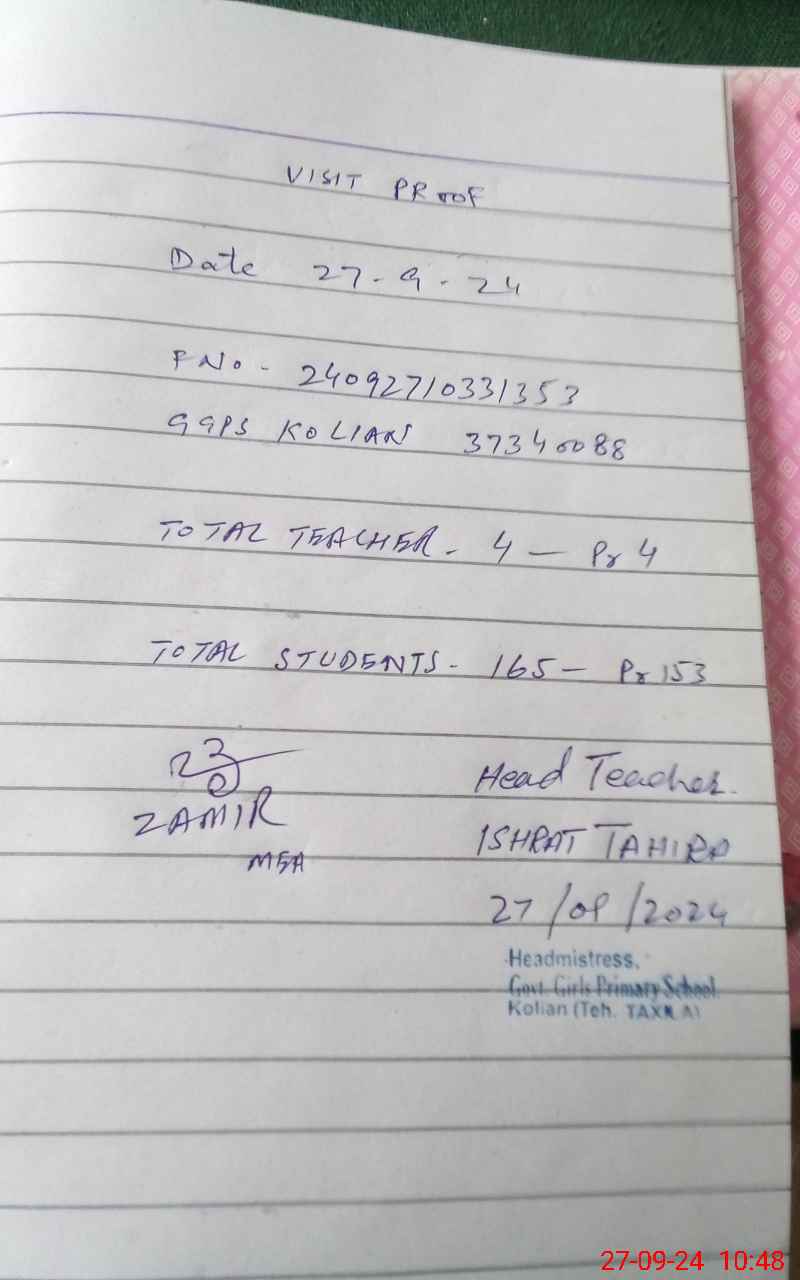 VISIT PROOF
Date 27-9-24
F No - 24092710331353
GGPS KOLIAN 37340088
TOTAL TEACHER - 4 - Pr 4
TOTAL STUDENTS - 165 - Pr 153
ZAMIR
MEA
Head Teacher.
ISHRAT TAHIRA
27/09/2024
Headmistress,
Govt. Girls Primary School
Kolian (Teh. TAXILA)
27-09-24 10:48